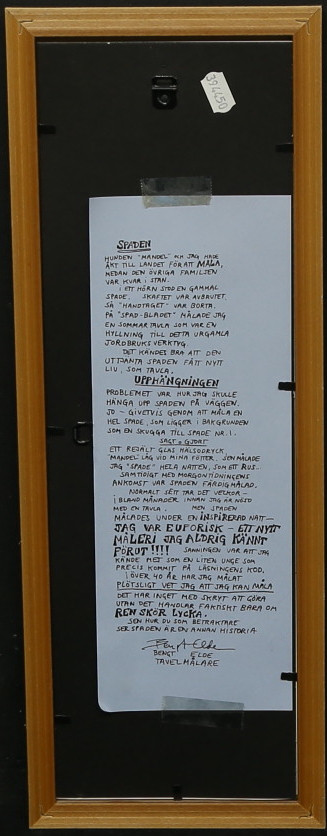 394450
SPADEN
HUNDEN "MANDEL" OCH JAG HADE
ÅKT TILL LANDET FÖR ATT MÅLA,
MEDAN DEN ÖVRIGA FAMILJEN
VAR KVAR I STAN.
I ETT HÖRN STOD EN GAMMAL
SPADE. SKAFTET VAR AVBRUTET,
SÅ "HANDTAGET" VAR BORTA.
PÅ "SPAD-BLADET" MÅLADE JAG
EN SOMMARTAVLA SOM VAR EN
HYLLNING TILL DETTA URGAMLA
JORDBRUKSVERKTYG
DET KÄNDES BRA ATT DEN
UTTJÄNTA SPADEN FÅTT NYTT
LIV, SOM TAVLA.
UPPHÄNGNINGEN
PROBLEMET VAR HUR JAG SKULLE
HÄNGA UPP SPADEN PÅ VÄGGEN.
JO - GIVETVIS GENOM ATT MÅLA EN
HEL SPADE, SOM LIGGER I BAKGRUNDEN
SOM EN SKUGGA TILL SPADE NR. 1.
SAGT & GJORT
ETT REJÄLT GLAS HÄLSODRYCK.
"MANDEL" LÅG VID MINA FÖTTER. SEN MÅLADE
JAG "SPADE" HELA NATTEN, SOM ETT RUS.
SAMTIDIGT MED MORGONTIDNINGENS
ANKOMST VAR SPADEN FÄRDIGMÅLAD.
NORMALT SETT TAR DET VECKOR -
IBLAND MÅNADER INNAN JAG ÄR NÖJD
MED EN TAVLA. MEN SPADEN
MÅLADES UNDER EN INSPIRERAD NATT -
JAG VAR EUFORISK - ETT NYTT
MÅLERI JAG ALDRIG KÄNNT
FÖRUT!!!! SANNINGEN VAR ATT JAG
KÄNDE MEJ SOM EN LITEN UNGE SOM
PRECIS KOMMIT PÅ LÄSNINGENS KOD.
I ÖVER 40 ÅR HAR JAG MÅLAT
PLÖTSLIGT VET JAG ATT JAG KAN MÅLA
DET HAR INGET MED SKRYT ATT GÖRA
UTAN DET HANDLAR FAKTISKT BARA OM
REN SKÖR LYCKA.
SEN HUR DU SOM BETRAKTARE
SER SPADEN ÄR EN ANNAN HISTORIA
Bengt Elde
BENGT ELDE
TAVELMÅLARE